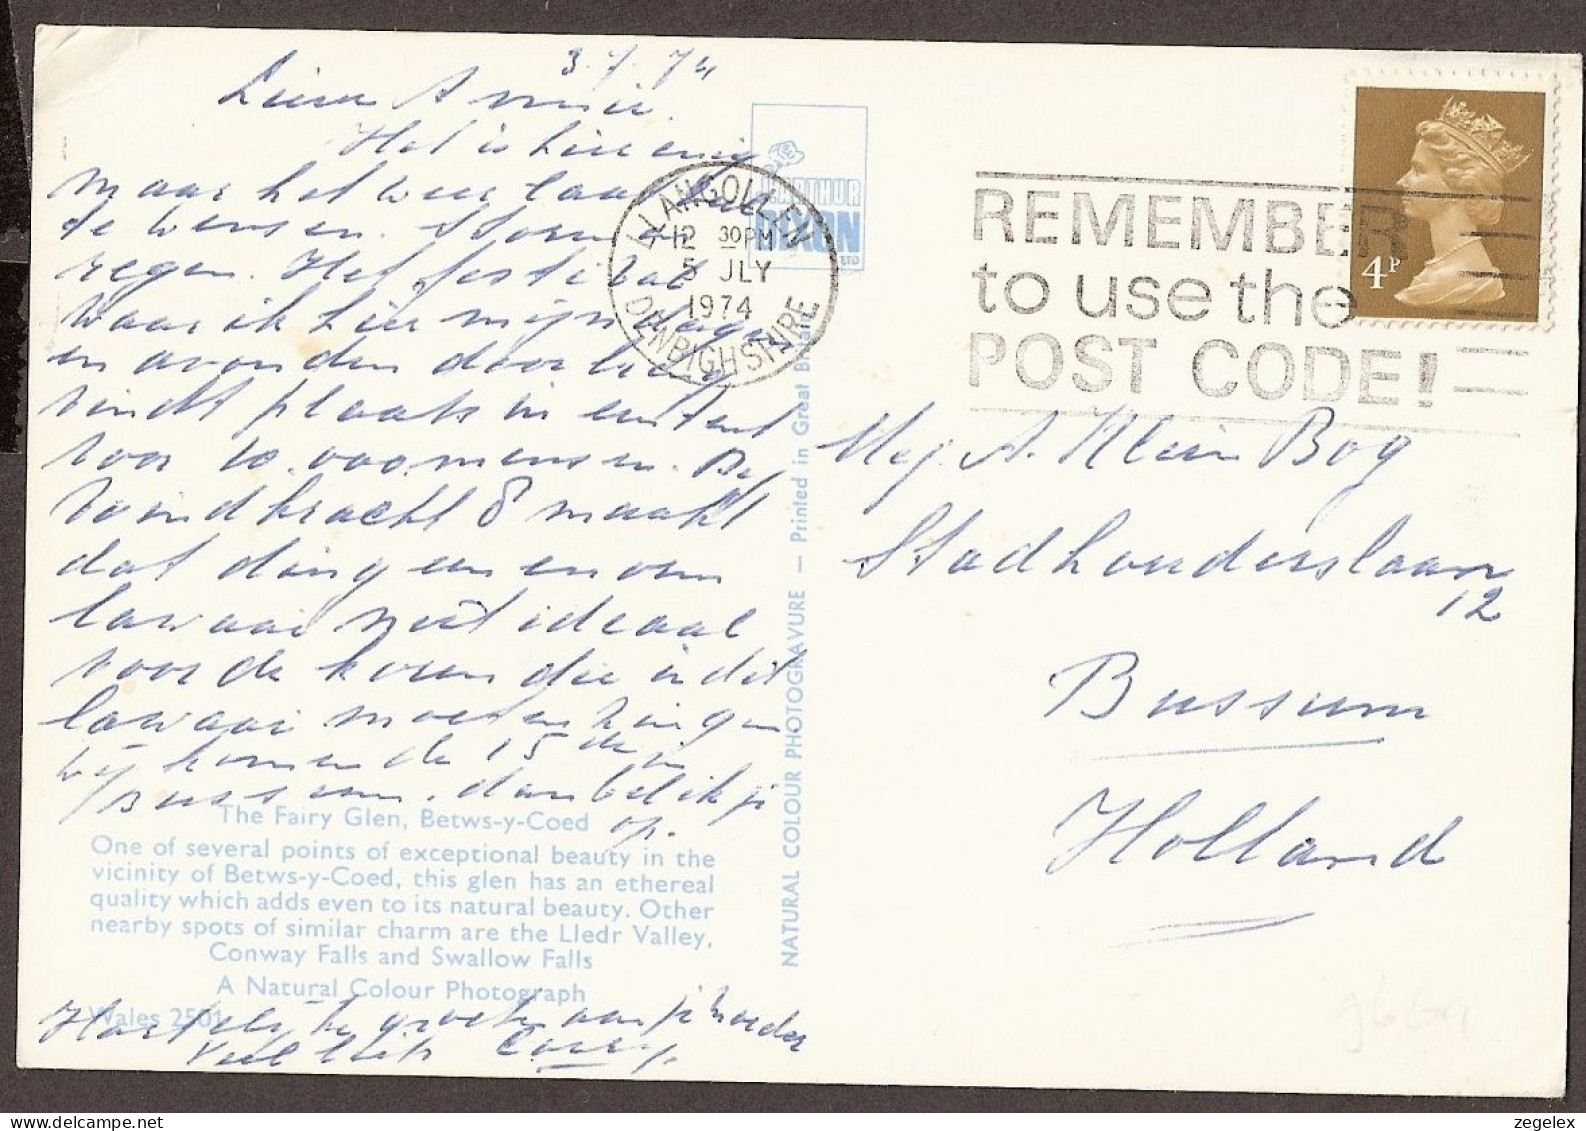 3.7.74
Lieve Annie.
Het is hier enig
maar het weer laat
te wensen. Storm en
regen. Het festival
waar ik hier mijn dagen
en avonden doorbreng
vindt plaats in een tent
voor 10.000 mensen. Bij
windkracht 8 maakt
dat ding een enorm
lawaai niet ideaal
voor de koren die in dit
lawaai moeten zingen
Wij komen de 15de in
Bussum. dan bel ik je
op.
The Fairy Glen, Betws-y-Coed
One of several points of exceptional beauty in the
vicinity of Betws-y-Coed, this glen has an ethereal
quality which adds even to its natural beauty. Other
nearby spots of similar charm are the Lledr Valley,
Conway Falls and Swallow Falls
A Natural Colour Photograph
Wales 2501
Hartelijke groeten aan je moeder
Veel liefs
ARTHUR
DIXON
LTD
LLANGOLLEN
12 30PM
5 JLY
1974
DENBIGHSHIRE
NATURAL COLOUR PHOTOGRAVURE — Printed in Great Britain
REMEMBER
to use the
POST CODE!
4P
Mej. A. Klein Bog
Stadhouderslaan
12
Bussum
Holland
9664
zegelex